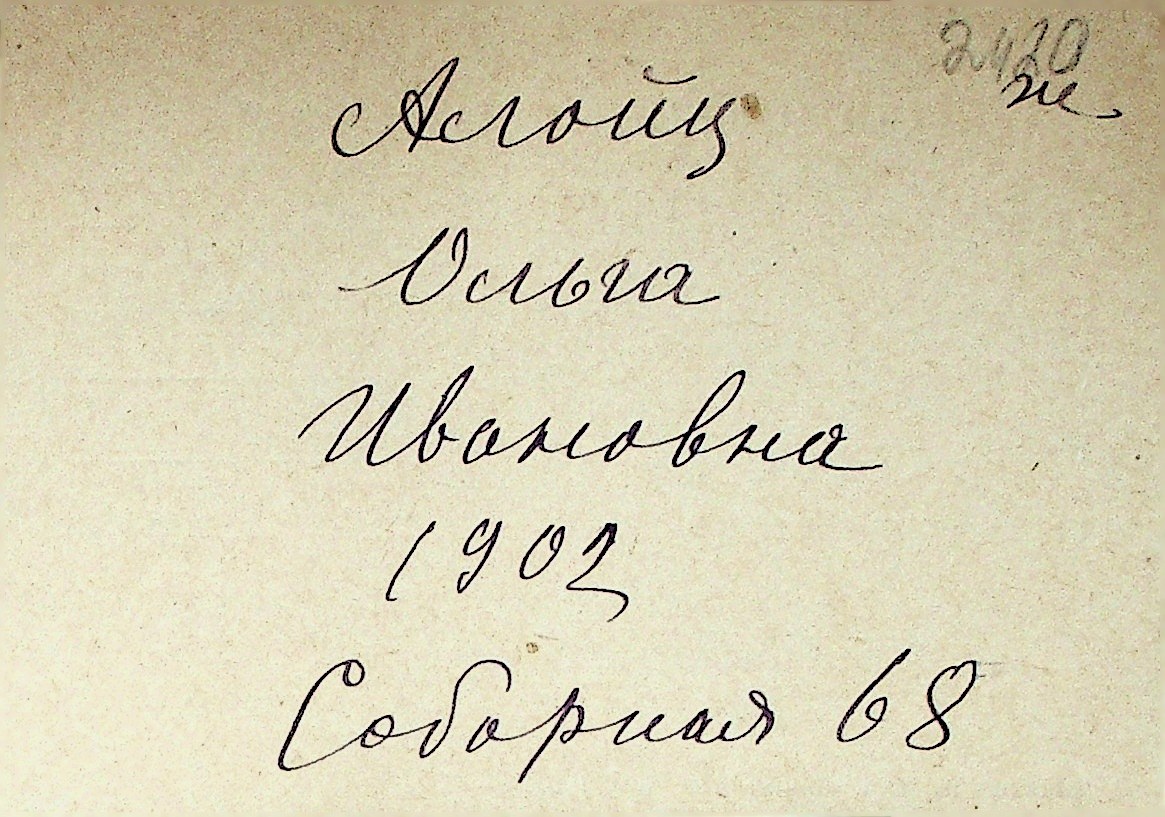 2420
ж
Алойц
Ольга
Ивановна
1902
Соборная 68